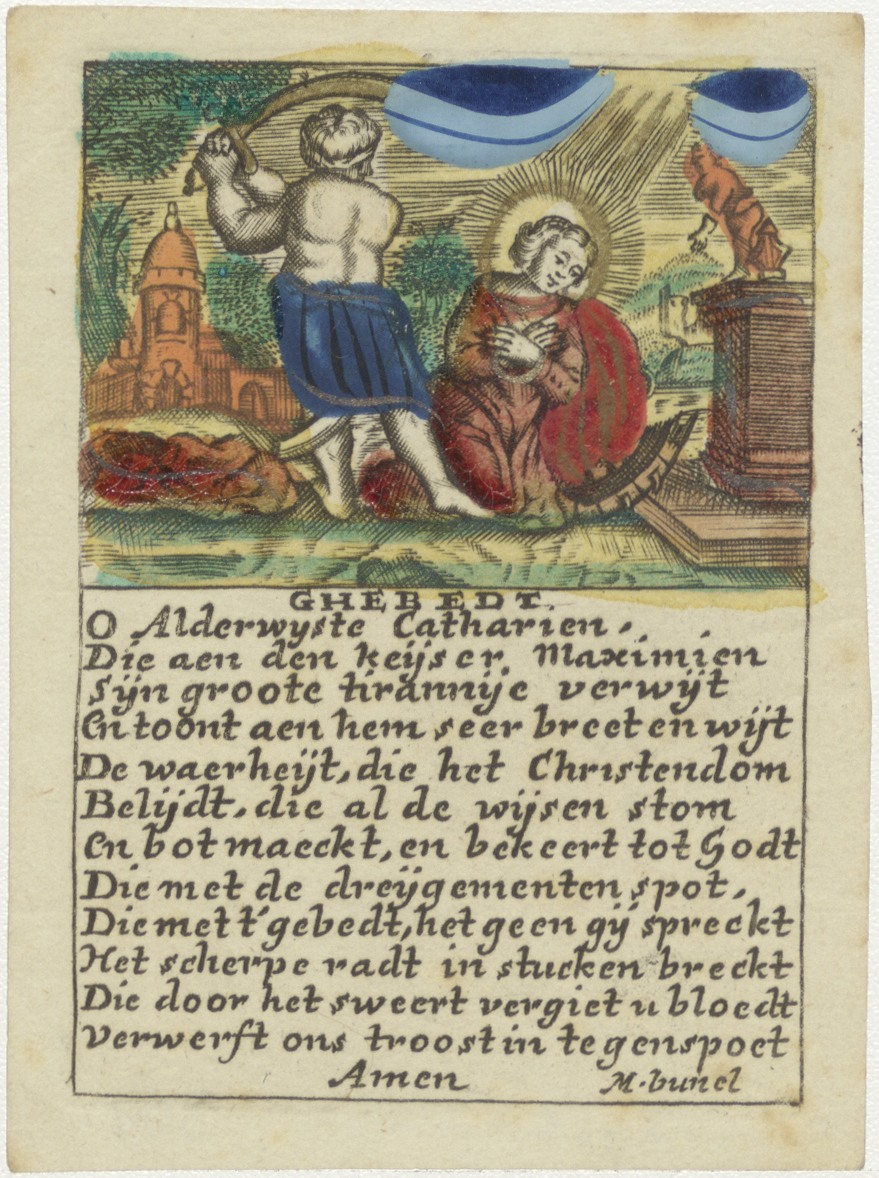 GHEBEDT.
O Alderwyste Catharien.
Die aen den keijser Maximien
Sijn groote tirannije verwijt
En toont aen hem seer breet en wijt
De waerheijt, die het Christendom
Belijdt, die al de wijsen stom
En bot maeckt, en bekeert tot Godt
Die met de dreijgementen spot,
Die met t'gebedt, het geen gij spreckt
Het scherpe radt in stucken breckt
Die door het sweert vergiet u bloedt
Verwerft ons troost in tegenspoet
Amen
M. bunel